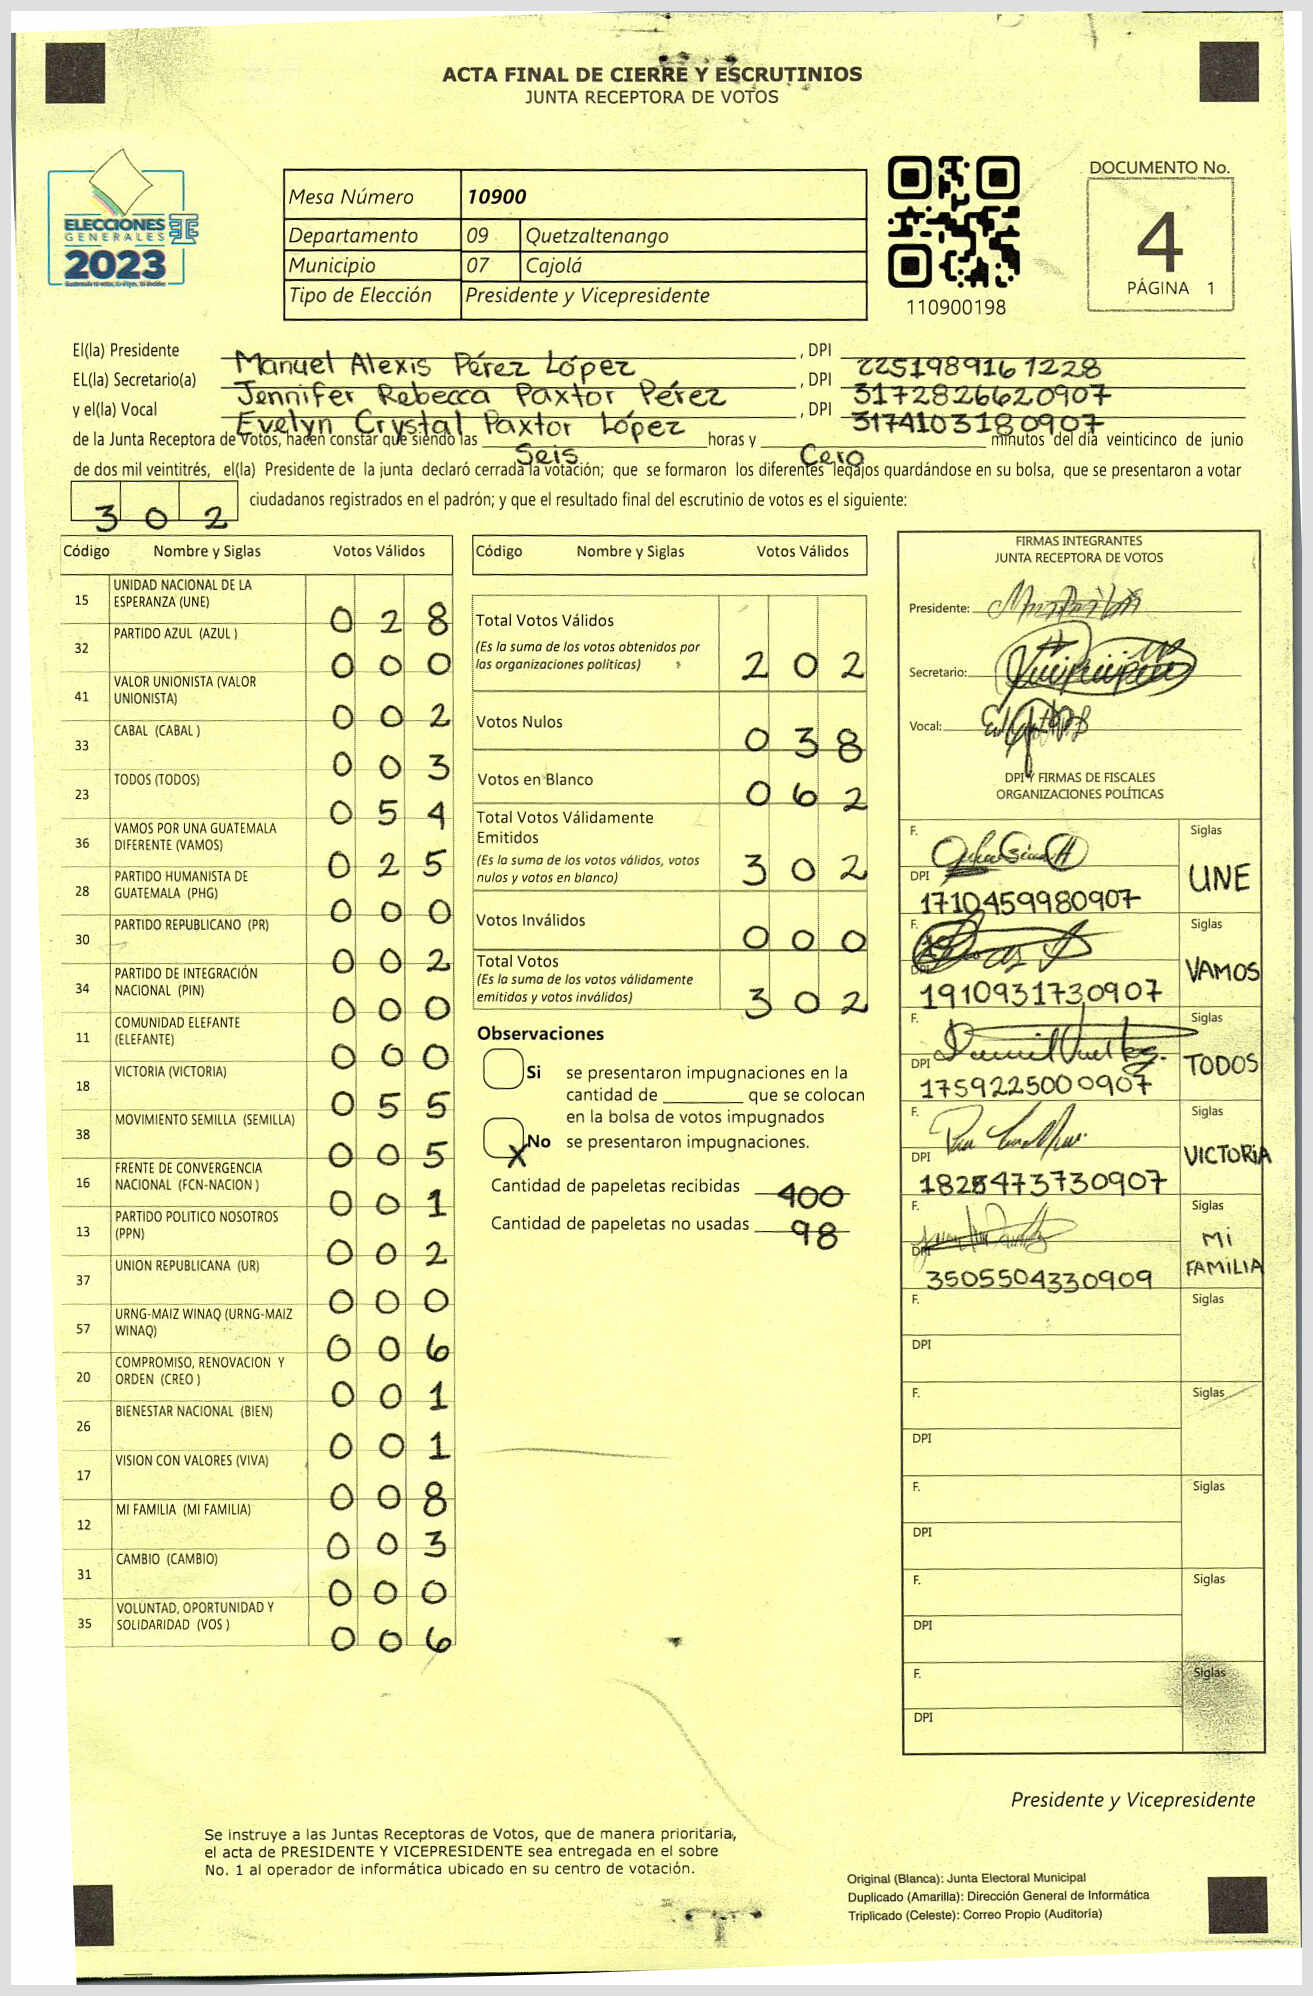 ACTA FINAL DE CIERRE Y ESCRUTINIOS
JUNTA RECEPTORA DE VOTOS
ELECCIONES
GENERALES
2023
Mesa Número 10900
Departamento 09 Quetzaltenango
Municipio 07 Cajolá
Tipo de Elección Presidente y Vicepresidente
110900198
DOCUMENTO No.
4
PÁGINA 1
El(la) Presidente Manuel Alexis Pérez López, DPI 2251989161228
EL(la) Secretario(a) Jennifer Rebecca Paxtor Pérez, DPI 3172826620907
y el(la) Vocal Evelyn Crystal Paxtor López, DPI 3174103180907
de la Junta Receptora de Votos, hacen constar que siendo las Seis horas y Cero minutos del día veinticinco de junio
de dos mil veintitrés, el(la) Presidente de la junta declaró cerrada la votación; que se formaron los diferentes legajos guardándose en su bolsa, que se presentaron a votar
302 ciudadanos registrados en el padrón; y que el resultado final del escrutinio de votos es el siguiente:
Código Nombre y Siglas Votos Válidos
15 UNIDAD NACIONAL DE LA ESPERANZA (UNE) 028
32 PARTIDO AZUL (AZUL ) 000
41 VALOR UNIONISTA (VALOR UNIONISTA) 002
33 CABAL (CABAL ) 003
23 TODOS (TODOS) 054
36 VAMOS POR UNA GUATEMALA DIFERENTE (VAMOS) 025
28 PARTIDO HUMANISTA DE GUATEMALA (PHG) 000
30 PARTIDO REPUBLICANO (PR) 002
34 PARTIDO DE INTEGRACIÓN NACIONAL (PIN) 000
11 COMUNIDAD ELEFANTE (ELEFANTE) 000
18 VICTORIA (VICTORIA) 055
38 MOVIMIENTO SEMILLA (SEMILLA) 005
16 FRENTE DE CONVERGENCIA NACIONAL (FCN-NACION ) 001
13 PARTIDO POLITICO NOSOTROS (PPN) 002
37 UNION REPUBLICANA (UR) 000
57 URNG-MAIZ WINAQ (URNG-MAIZ WINAQ) 006
20 COMPROMISO, RENOVACION Y ORDEN (CREO ) 001
26 BIENESTAR NACIONAL (BIEN) 001
17 VISION CON VALORES (VIVA) 008
12 MI FAMILIA (MI FAMILIA) 003
31 CAMBIO (CAMBIO) 000
35 VOLUNTAD, OPORTUNIDAD Y SOLIDARIDAD (VOS ) 006
Código Nombre y Siglas Votos Válidos
Total Votos Válidos 202
(Es la suma de los votos obtenidos por
las organizaciones políticas)
Votos Nulos 038
Votos en Blanco 062
Total Votos Válidamente
Emitidos 302
(Es la suma de los votos válidos, votos
nulos y votos en blanco)
Votos Inválidos 000
Total Votos 302
(Es la suma de los votos válidamente
emitidos y votos inválidos)
Observaciones
Si se presentaron impugnaciones en la
cantidad de ________ que se colocan
en la bolsa de votos impugnados
X No se presentaron impugnaciones.
Cantidad de papeletas recibidas 400
Cantidad de papeletas no usadas 98
FIRMAS INTEGRANTES
JUNTA RECEPTORA DE VOTOS
Presidente:
Secretario:
Vocal:
DPI Y FIRMAS DE FISCALES
ORGANIZACIONES POLÍTICAS
F. Siglas
DPI 1710459980907 UNE
F. Siglas
DPI 1910931730907 VAMOS
F. Siglas
DPI 1759225000907 TODOS
F. Siglas
DPI 1825473730907 VICTORIA
F. Siglas
DPI 3505504330909 MI FAMILIA
F. Siglas
DPI
F. Siglas
DPI
F. Siglas
DPI
F. Siglas
DPI
F. Siglas
DPI
Presidente y Vicepresidente
Se instruye a las Juntas Receptoras de Votos, que de manera prioritaria,
el acta de PRESIDENTE Y VICEPRESIDENTE sea entregada en el sobre
No. 1 al operador de informática ubicado en su centro de votación.
Original (Blanca): Junta Electoral Municipal
Duplicado (Amarilla): Dirección General de Informática
Triplicado (Celeste): Correo Propio (Auditoría)